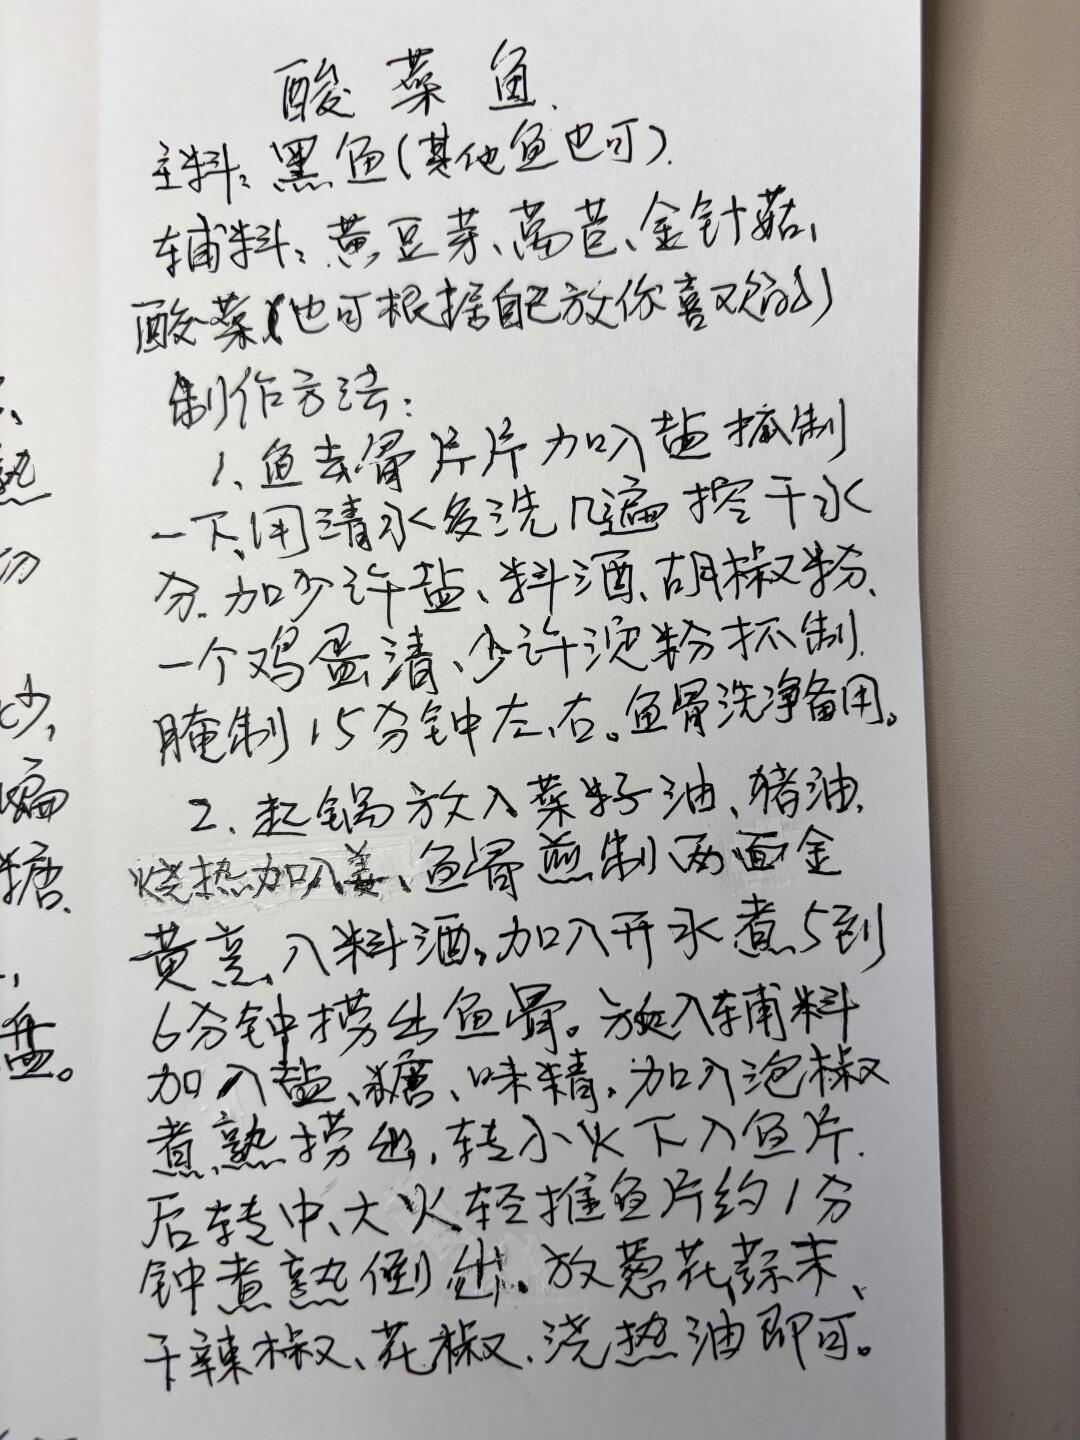 酸菜鱼.
主料:黑鱼(其他鱼也可).
辅料:黄豆芽、莴苣、金针菇、
酸菜(也可根据自己放你喜欢的)
制作方法:
1、鱼去骨片片加入盐抓制
一下、用清水多洗几遍控干水
分.加少许盐、料酒、胡椒粉、
一个鸡蛋清、少许淀粉抓制.
腌制15分钟左右。鱼骨洗净备用。
2、起锅放入菜籽油、猪油.
烧热加入姜、鱼骨煎制两面金
黄亮,入料酒,加入开水煮5到
6分钟捞出鱼骨。放入辅料
加入盐、糖、味精,加入泡椒
煮熟捞出,转小火下入鱼片.
后转中、大火轻推鱼片约1分
钟煮熟倒出。放葱花,蒜末、
干辣椒、花椒.浇热油即可。
熟
份
炒,
糖.
盘。